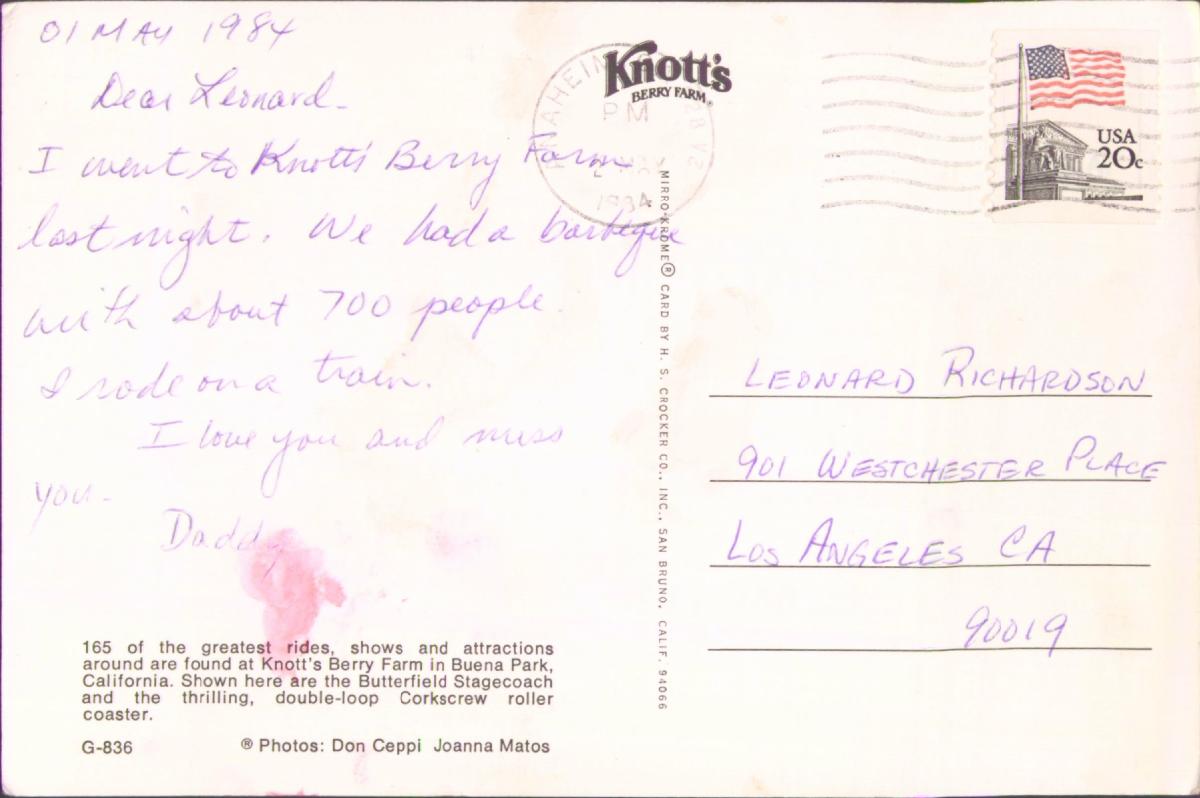 01 MAY 1984
Dear Leonard-
I went to Knott's Berry Farm
last night. We had a barbeque
with about 700 people.
I rode on a train.
I love you and miss
you-
Daddy
165 of the greatest rides, shows and attractions
around are found at Knott's Berry Farm in Buena Park,
California. Shown here are the Butterfield Stagecoach
and the thrilling, double-loop Corkscrew roller
coaster.
G-836
® Photos: Don Ceppi Joanna Matos
Knott's
BERRY FARM®
PM
1984
MIRRO-KROME® CARD BY H. S. CROCKER CO., INC., SAN BRUNO, CALIF. 94066
USA
20c
LEONARD RICHARDSON
901 WESTCHESTER PLACE
LOS ANGELES CA
90019